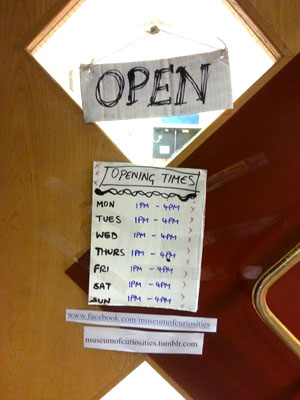 OPEN
OPENING TIMES
MON 1PM - 4PM
TUES 1PM - 4PM
WED 1PM - 4PM
THURS 1PM - 4PM
FRI 1PM - 4PM
SAT 1PM - 4PM
SUN 1PM - 4PM
www.facebook.com/museumofcuriosities
museumofcuriosities.tumblr.com